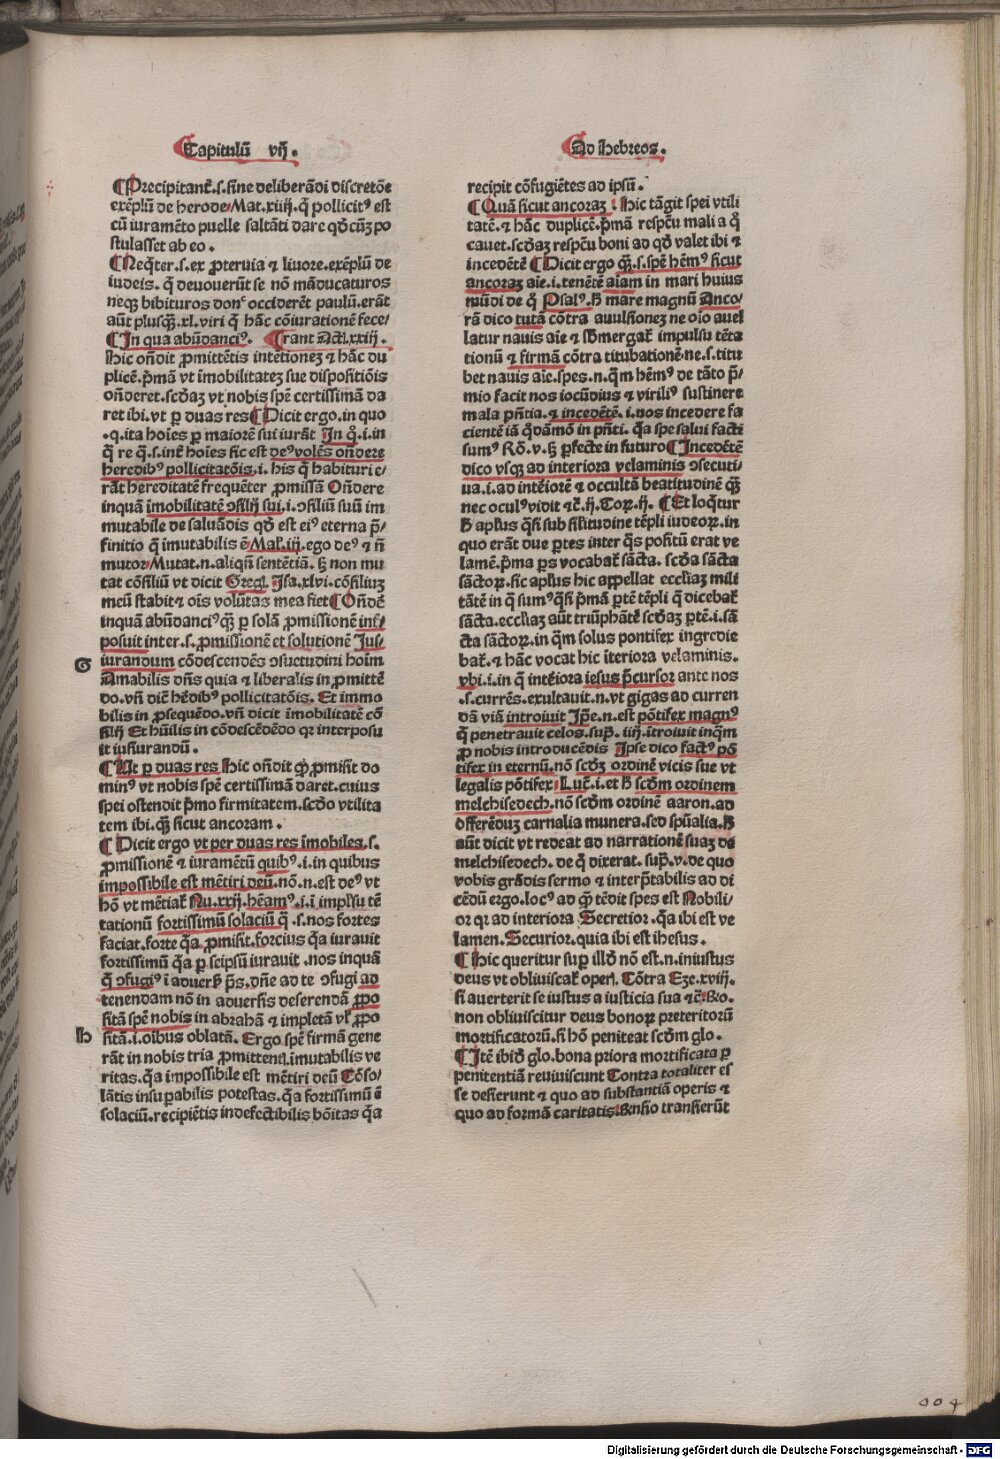 Capitulū vij.
Ad Hebreos.
¶Precipitant̄.s.sine deliberādi discretōe
exēplū de herode Mat.xiiij.q̄ pollicitꝰ est
cū iuramēto puelle saltāti dare qd̄cūqz po
stulasset ab eo.
¶Neqⁱter.s.ex ꝓteruia ⁊ liuore.exēplū de
iudeis. q̄ deuouerūt se nō māducaturos
neqz bibituros donᶜ occiderēt paulū.erāt
aūt plusqȝ.xl.viri q̄ hāc cōiurationē fece/
¶In qua abūdanciꝰ. ¶rant Act.xxiij.
Hic oñdit ꝓmittētis intētionez ⁊ hāc du
plicē.p̄mā vt īmobilitatez sue dispositiōis
oñderet.scd̄az vt nobis spē certissimā da
ret ibi.vt ꝑ duas res ¶Dicit ergo.in quo
.q.ita hoīes ꝑ maiorē sui iurāt In q̊.i.in
q̄ re q̄.s.int̄ hoīes sic est deꝰ volēs oñdere
heredibꝰ pollicitatōis.i. his q̄ habituri e/
rāt hereditatē frequēter ꝓmissā Oñdere
inquā īmobilitatē ꝯsilij sui.i.ꝯsiliū suū im
mutabile de saluādis qd̄ est eiꝰ eterna p̄/
finitio q̄ imutabilis ē Mal̄.iij.ego deꝰ ⁊ ñ
mutor Mutat.n.aliqn̄ sentētiā.sȝ non mu
tat cōsiliū vt dicit Greg̅. Isa.xlvi.cōsiliuȝ
meū stabit ⁊ oīs volūtas mea fiet ¶Oñdē
inquā abūdanciꝰqȝ ꝑ solā ꝓmissionē int̄/
posuit inter.s.ꝓmissionē et solutionē Jus/
G iurandum cōdescendēs ꝯsuetudini hoīm
Amabilis dn̄s quia ⁊ liberalis in ꝓmittē
do.vñ dic̄ hēdibꝰ pollicitatōis. Et immo
bilis in ꝓsequēdo.vñ dicit īmobilitatē cō
silij Et hūilis in cōdescēdēdo qꝛ interposu
it iusiurandū.
¶Ut ꝑ duas res Hic oñdit qͣ ꝓmisit do
minꝰ vt nobis spē certissimā daret.cuius
spei ostendit p̄mo firmitatem.scd̄o vtilita
tem ibi.qȝ sicut ancoram.
¶Dicit ergo vt per duas res īmobiles.s.
ꝓmissionē ⁊ iuramētū quibꝰ.i.in quibus
impossibile est mētiri deū.nō.n.est deꝰ vt
hō vt mētiat̄ Nu.xxij.hēamꝰ.i.ī implsu tē
tationū fortissimū solaciū q̄ .s.nos fortes
faciat.forte qͣa ꝓmisit.forcius qͣa iurauit
fortissimū qͣa ꝑ seipsū iurauit .nos inquā
q̄ ꝯfugiꝰ ī aduersꝭ p̄s.dn̄e ad te ꝯfugi ad
tenendam nō in aduersis deserendā ꝓpo
sitā spē nobis in abrahā ⁊ impletā vl̄ ꝓpo
H sitā.i.oībus oblatā. Ergo spē firmā gene
rāt in nobis tria ꝓmittentꝭ.imutabilis ve
ritas.qͣa impossibile est mētiri deū Cōso/
lātis insuꝑabilis potestas.qͣa fortissimū ē
solaciū.recipiētis indefectibilis bōitas qͣa
recipit cōfugiētes ad ipsū.
¶Quā sicut ancoraȝ : Hic tāgit spei vtili
tatē.⁊ hāc duplicē.p̄mā respc̄u mali a q̊
cauet.scd̄aȝ respc̄u boni ad qd̄ valet ibi ⁊
incedētē ¶Dicit ergo qȝ.s.spē hēmꝰ sicut
ancoraȝ aīe.i.tenētē aīam in mari huius
mūdi de q̄ Psalꝰ.H̄ mare magnū Anco/
rā dico tutā cōtra auulsionez ne oīo auel
latur nauis aīe ⁊ sb̄mergat̄ impulsu tēta
tionū ⁊ firmā cōtra titubationē.ne.s.titu
bet nauis aīe.spes.n.qͣm hēmꝰ de tāto p̄/
mio facit nos iocūdius ⁊ viriliꝰ sustinere
mala pn̄tia.⁊ incedētē.i.nos incedere fa
cientē iā q̊dāmō in pn̄ti. qͣa spe salui facti
sumꝰ Rō.v.sȝ ꝑfecte in futuro ¶Incedētē
dico vsqȝ ad interiora velaminis ꝯsecuti/
ua.i.ad intēiorē ⁊ occultā beatitudinē qȝ
nec oculꝰ vidit ⁊c̄.ij.Corꝝ.ij. ¶Et loqⁱtur
H̄ aplus qͣsi sub silitudine tēpli iudeorꝝ.in
quo erāt due ꝑtes inter q̄s positū erat ve
lamē.p̄ma ꝑs vocabat̄ sācta. scd̄a sācta
sāctorꝝ.sic aplus hic appellat eccliaȝ mili
tātē in q̄ sumꝰ qͣsi p̄mā ꝑtē tēpli q̄ dicebat̄
sācta.eccliaȝ aūt triūphātē scd̄aȝ ꝑtē.i.sā
cta sāctorꝝ.in qͣm solus pontifex ingredie
bat̄.⁊ hāc vocat hic īteriora velaminis.
vbi.i.in q̄ intēiora iesus p̄cursor ante nos
.s.currēs.exultauit.n.vt gigas ad curren
dā viā introiuit Ip̄e.n.est pōtifex magnꝰ
q̄ penetrauit celos.sup̄. iiij.ītroiuit inqͣm
ꝓ nobis introducēdis Ipse dico factꝰ pō
tifex in eternū.nō scd̄ȝ ordinē vicis sue vt
legalis pōtifex Luc̄.i.et H̄ scd̄m ordinem
melchisedech.nō scd̄m ordinē aaron.ad
offerēduȝ carnalia munera.sed spūalia.H̄
aūt dicit vt redeat ad narrationē suaȝ de
melchisedech. de q̄ dixerat. sup̄.v.de quo
vobis grādis sermo ⁊ interp̄tabilis ad di
cēdū ergo.locꝰ ad q̄ tēdit spes est Nobili/
or qꝛ ad interiora Secretior.qͣa ibi est ve
lamen.Securior.quia ibi est ihesus.
¶Hic queritur suꝑ illd̄ nō est.n.iniustus
deus vt obliuiscat̄ operꝭ. Cōtra Eze.xviij.
si auerterit se iustus a iusticia sua ⁊c̄ Rō.
non obliuiscitur deus bonorꝝ preteritorū
mortificatorū.si hō peniteat scd̄m glo.
¶Itē ibid̄ glo.bona priora mortificata ꝑ
penitentiā reuiuiscunt Contra totaliter es
se desierunt ⁊ quo ad substantiā operis ⁊
quo ad formā caritatis Rn̄sio transierūt
Digitalisierung gefördert durch die Deutsche Forschungsgemeinschaft - DFG